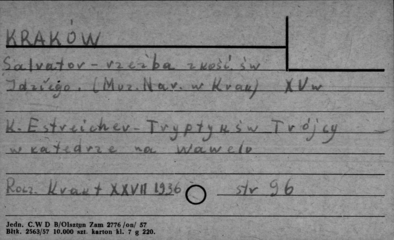 KRAKÓW
Salvator - rzeźba z kość. św
Idziego. (Muz. Nar. w Krak) XV w
K. Estreicher - Tryptyk św Trójcy
w katedrze na Wawelu
Rocz. Krak t XXVII 1936 str 96
Jedn. C.W D B/Olsztyn Zam 2776/on/ 57
Bltk. 2563/57 10.000 szt. karton kl. 7 g 220.